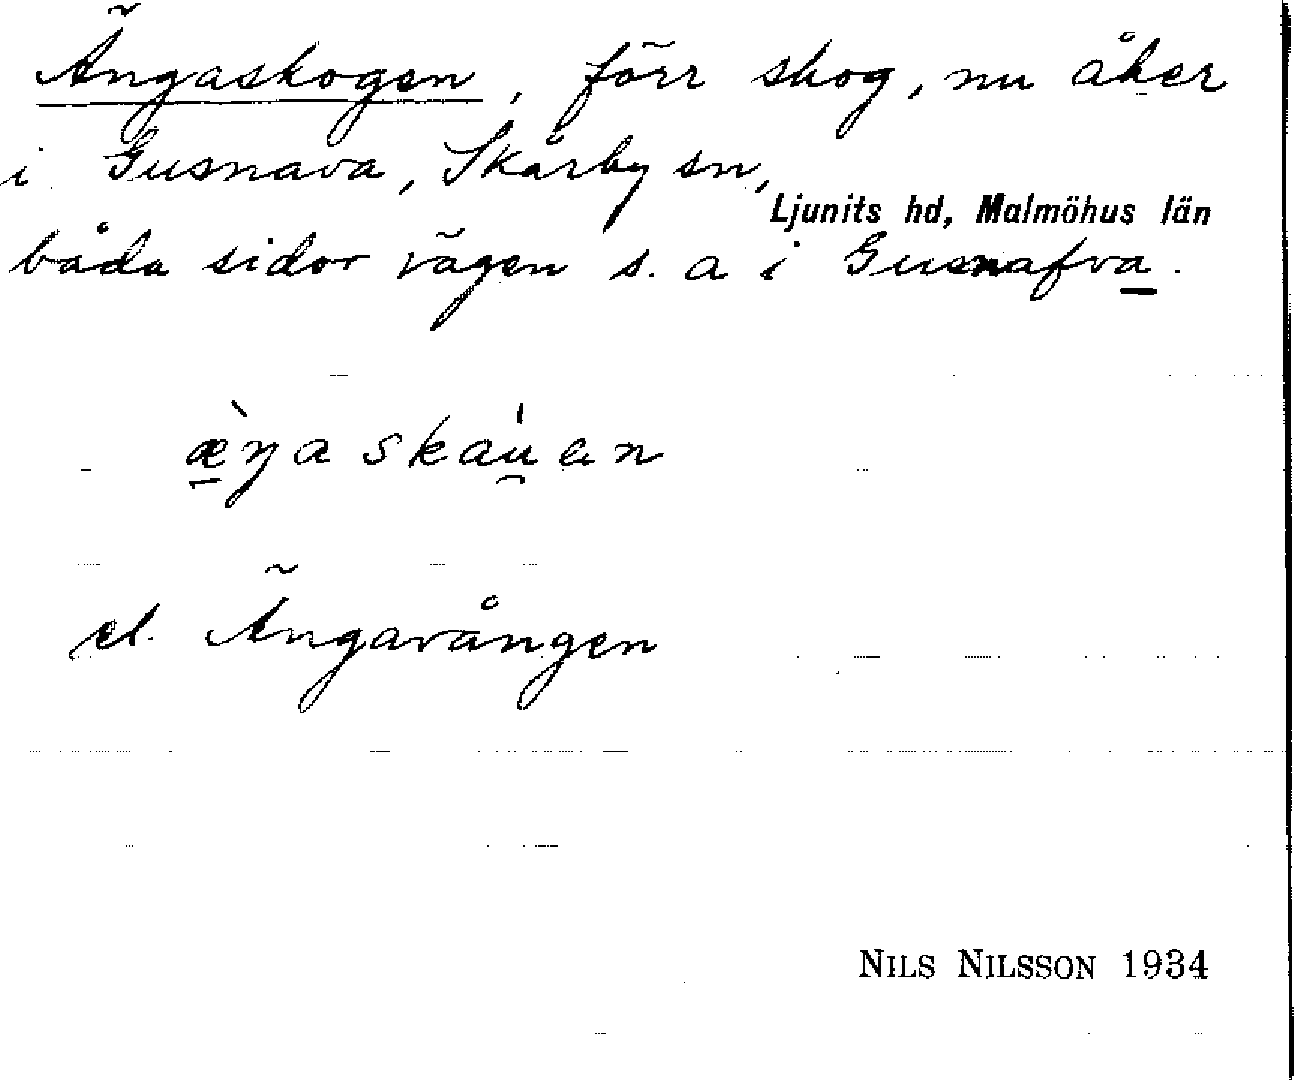 Ängaskogen, förr skog, nu åker
i Gusnava, Skårby sn,
Ljunits hd, Malmöhus län
båda sidor vägen s. a i Gusnafva.
æ̀ŋaskáu̯ən
el. Ängavången
NILS NILSSON 1934